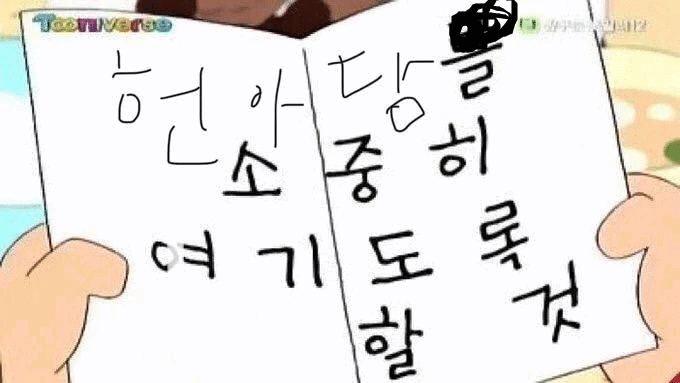 Tooniverse
헌아담을
소중히
여기도록
할 것